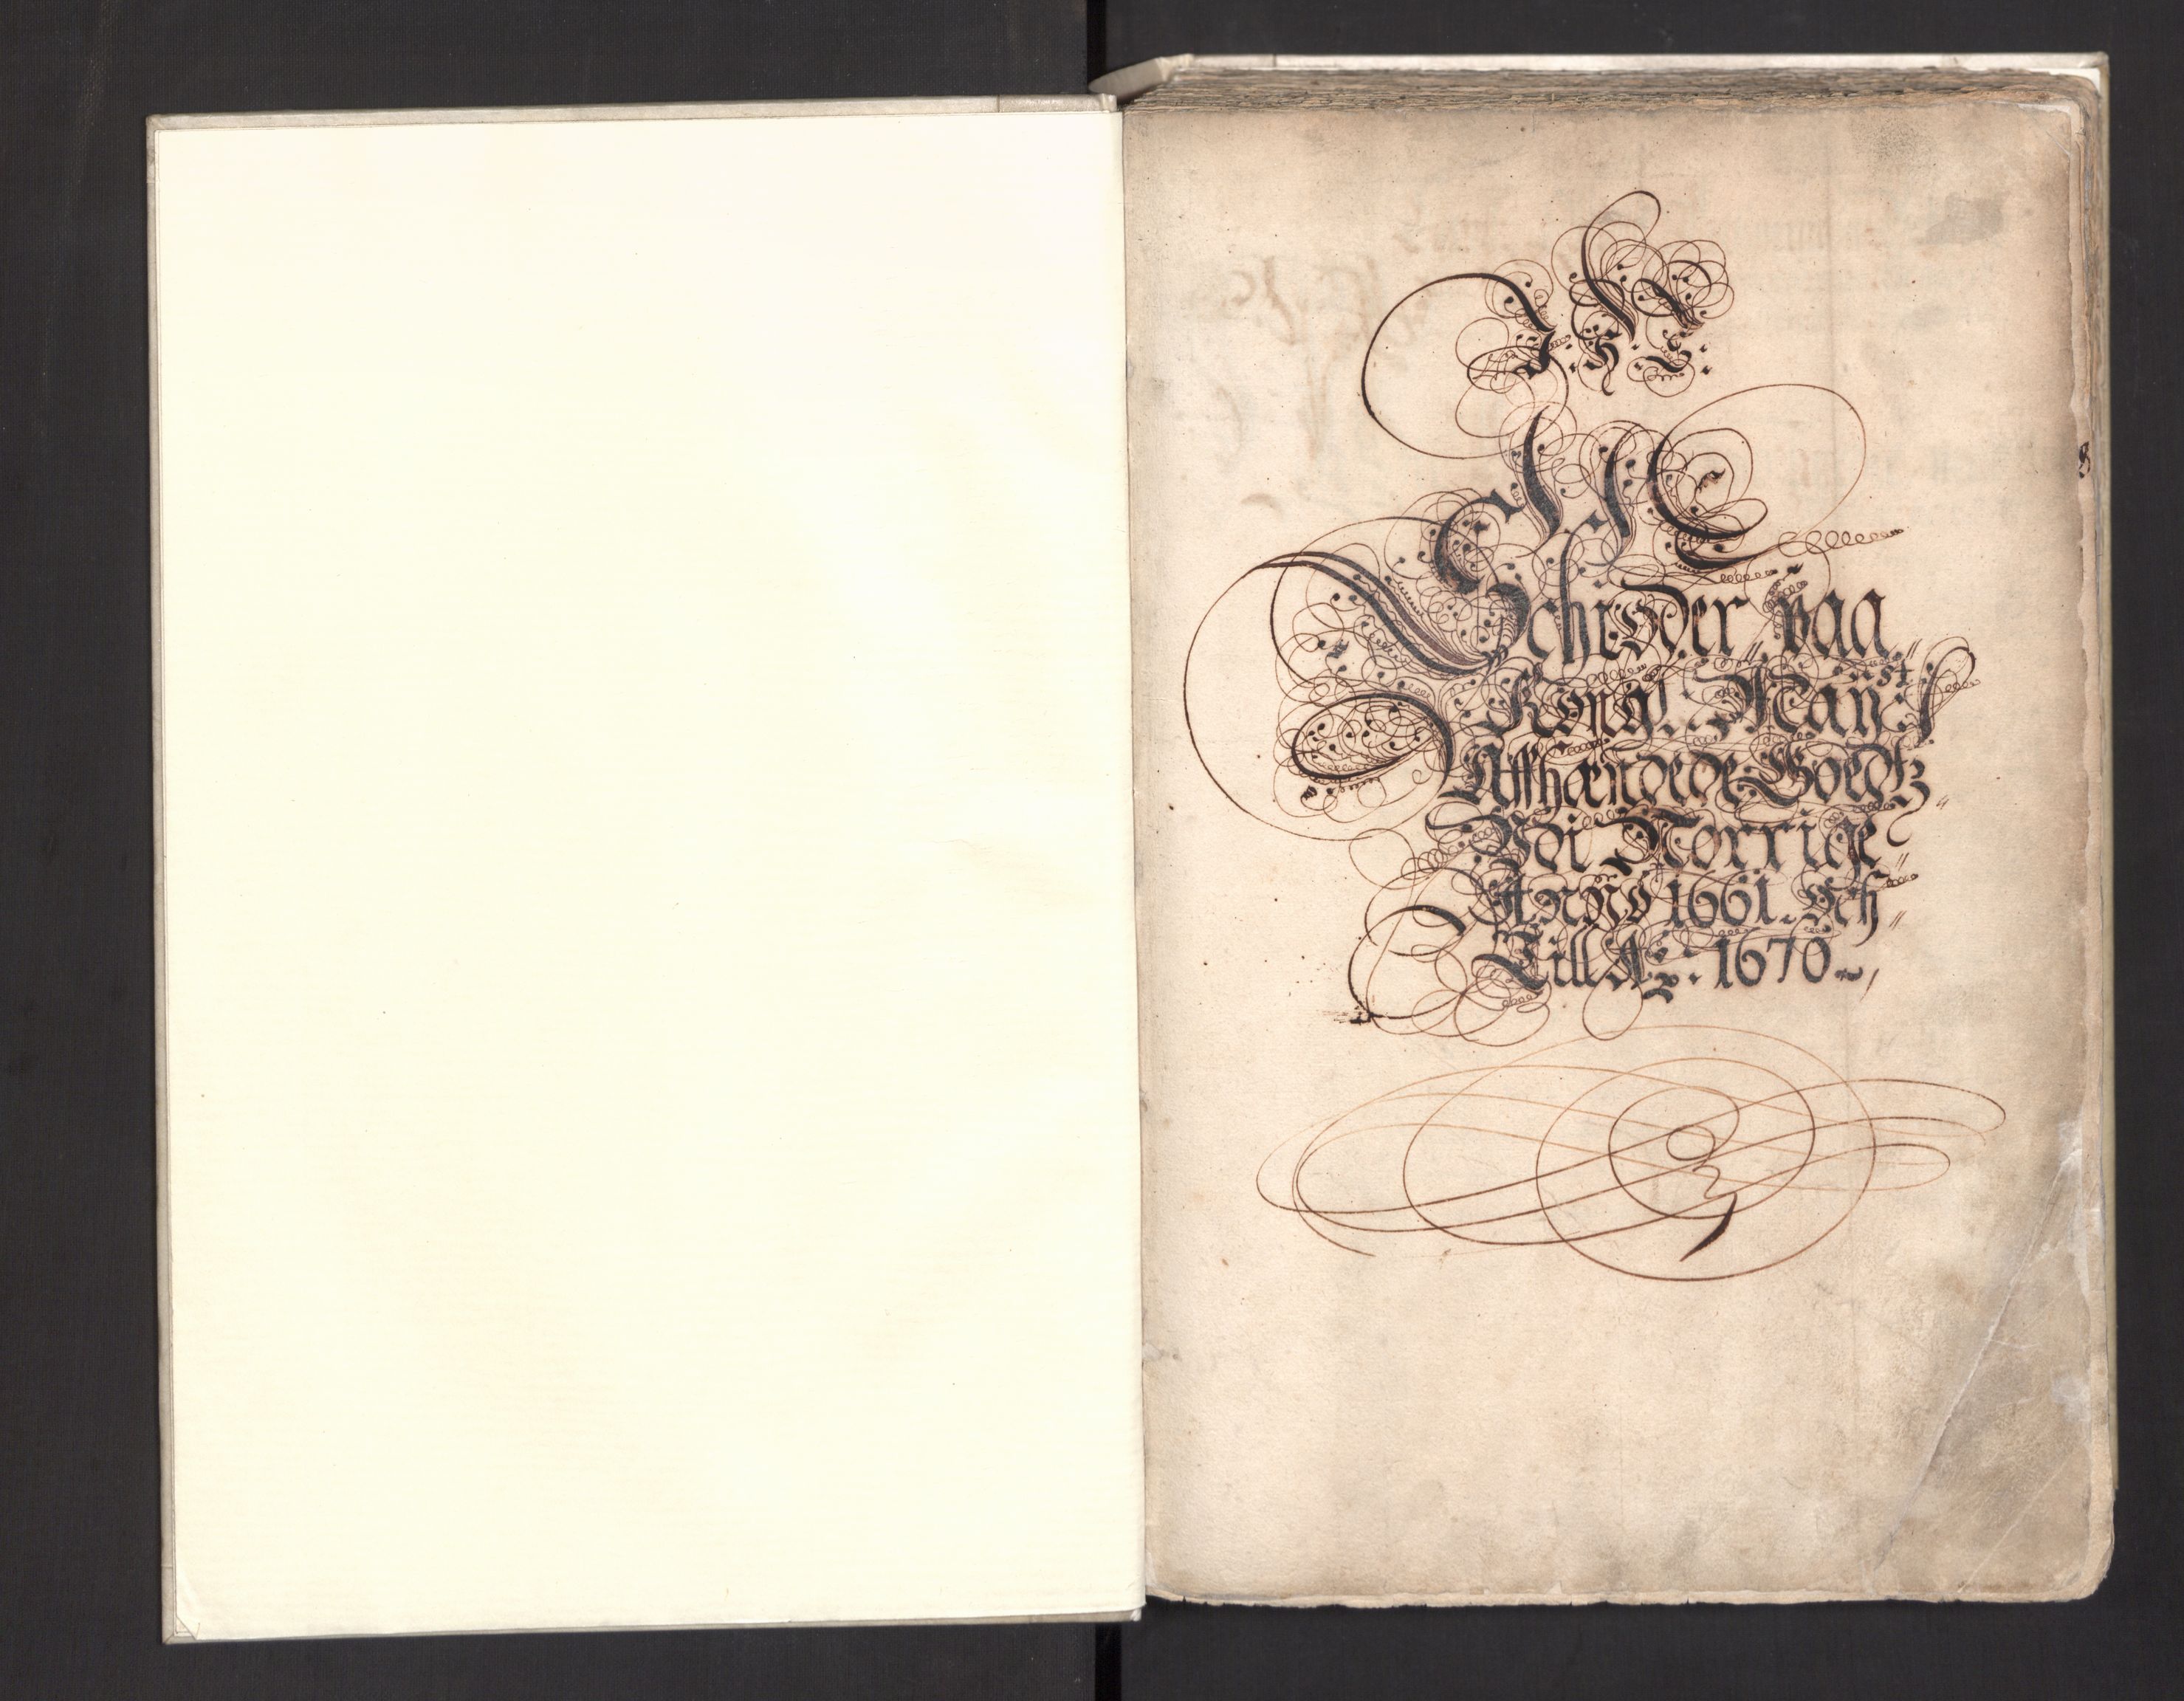 J. N. J.
SChiøder paa
Kongl. Mayst:
Affhændede Goedtz
Udi Norrige
Anno 1661. Och
Till Ao. 1670